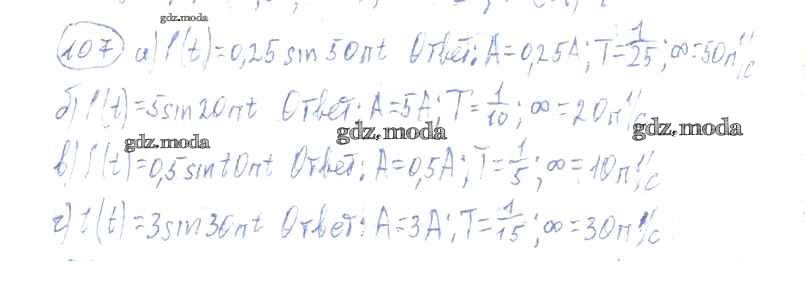 gdz.moda
107 а) I(t)=0,25 sin 50πt Ответ: A=0,25A; T=1/25; ω=50π 1/с
б) I(t)=5sin20πt Ответ: A=5A; T=1/10; ω=20π 1/с
gdz.moda gdz.moda gdz.moda
в) I(t)=0,5sin10πt Ответ: A=0,5A; T=1/5; ω=10π 1/с
г) I(t)=3sin30πt Ответ: A=3A; T=1/15; ω=30π 1/с